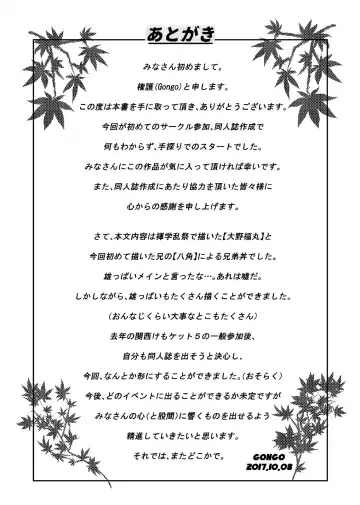 あとがき
みなさん初めまして。
権護(Gongo)と申します。
この度は本書を手に取って頂き、ありがとうございます。
今回が初めてのサークル参加、同人誌作成で
何もわからず、手探りでのスタートでした。
みなさんにこの作品が気に入って頂ければ幸いです。
また、同人誌作成にあたり協力を頂いた皆々様に
心からの感謝を申し上げます。
さて、本文内容は褌学乱祭で描いた【大野福丸】と
今回初めて描いた兄の【八角】による兄弟丼でした。
雄っぱいメインと言ったな…。あれは嘘だ。
しかしながら、雄っぱいもたくさん描くことができました。
(おんなじくらい大事なとこもたくさん)
去年の関西けもケット5の一般参加後、
自分も同人誌を出そうと決心し、
今回、なんとか形にすることができました。(おそらく)
今後、どのイベントに出ることができるか未定ですが
みなさんの心(と股間)に響くものを出せるよう
精進していきたいと思います。
それでは、またどこかで。
GONGO
2017,10,08